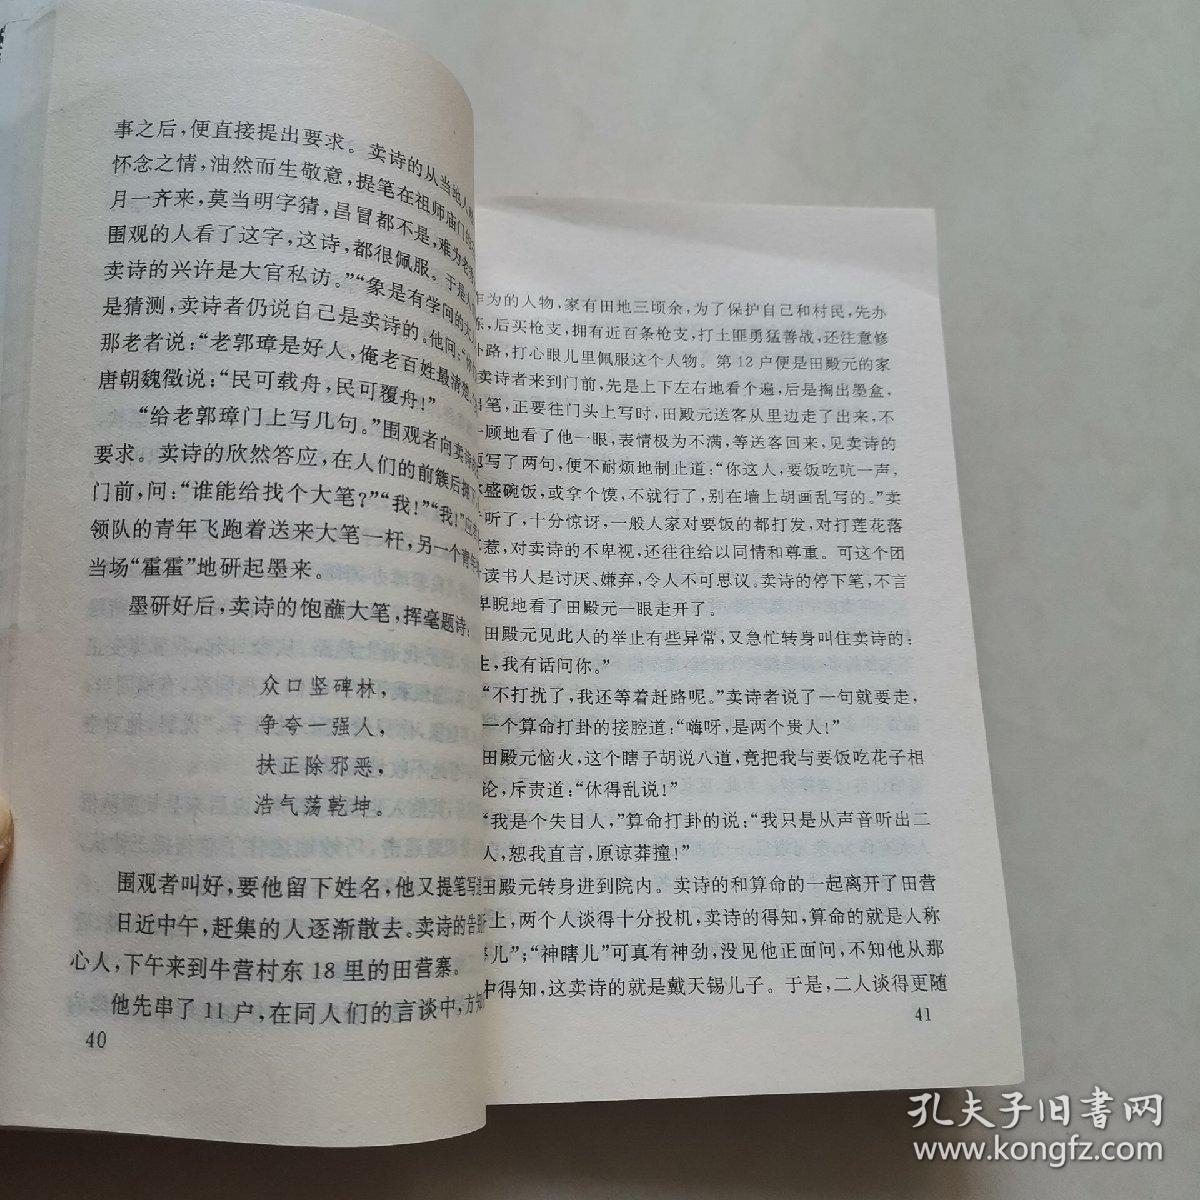 事之后，便直接提出要求。卖诗的从当地人
怀念之情，油然而生敬意，提笔在祖师庙门
月一齐来，莫当明字猜，昌冒都不是，难为老
围观的人看了这字，这诗，都很佩服。于是
卖诗的兴许是大官私访。”“象是有学问的
是猜测，卖诗者仍说自己是卖诗的。他问：
那老者说：“老郭璋是好人，俺老百姓最清楚
唐朝魏徵说：“民可载舟，民可覆舟！”
“给老郭璋门上写几句。”围观者向卖诗
要求。卖诗的欣然答应，在人们的前簇后拥
门前，问：“谁能给找个大笔？”“我！”“我！”
领队的青年飞跑着送来大笔一杆，另一个青
当场“霍霍”地研起墨来。
墨研好后，卖诗的饱蘸大笔，挥毫题诗：
众口竖碑林，
争夸一强人，
扶正除邪恶，
浩气荡乾坤。
围观者叫好，要他留下姓名，他又提笔写
日近中午，赶集的人逐渐散去。卖诗的告
心人，下午来到牛营村东18里的田营寨。
他先串了11户，在同人们的言谈中，方知
40
作为的人物，家有田地三顷余，为了保护自己和村民，先办
东，后买枪支，拥有近百条枪支，打土匪勇猛善战，还注意修
路，打心眼儿里佩服这个人物。第12户便是田殿元的家
卖诗者来到门前，先是上下左右地看个遍，后是掏出墨盒，
笔，正要往门头上写时，田殿元送客从里边走了出来，不
一顾地看了他一眼，表情极为不满，等送客回来，见卖诗的
写了两句，便不耐烦地制止道：“你这人，要饭吃吭一声，
盛碗饭，或拿个馍，不就行了，别在墙上胡画乱写的。”卖
听了，十分惊讶，一般人家对要饭的都打发，对打莲花落
惹，对卖诗的不卑视，还往往给以同情和尊重。可这个团
读书人是讨厌、嫌弃，令人不可思议。卖诗的停下笔，不言
睨地看了田殿元一眼走开了。
田殿元见此人的举止有些异常，又急忙转身叫住卖诗的：
生，我有话问你。”
“不打扰了，我还等着赶路呢。”卖诗者说了一句就要走，
一个算命打卦的接腔道：“嗨呀，是两个贵人！”
田殿元恼火，这个瞎子胡说八道，竟把我与要饭吃花子相
论，斥责道：“休得乱说！”
“我是个失目人，”算命打卦的说：“我只是从声音听出二
人，恕我直言，原谅莽撞！”
田殿元转身进到院内。卖诗的和算命的一起离开了田营
上，两个人谈得十分投机，卖诗的得知，算命的就是人称
儿”；“神瞎儿”可真有神劲，没见他正面问，不知他从那
中得知，这卖诗的就是戴天锡儿子。于是，二人谈得更随
41
孔夫子旧书网
www.kongfz.com